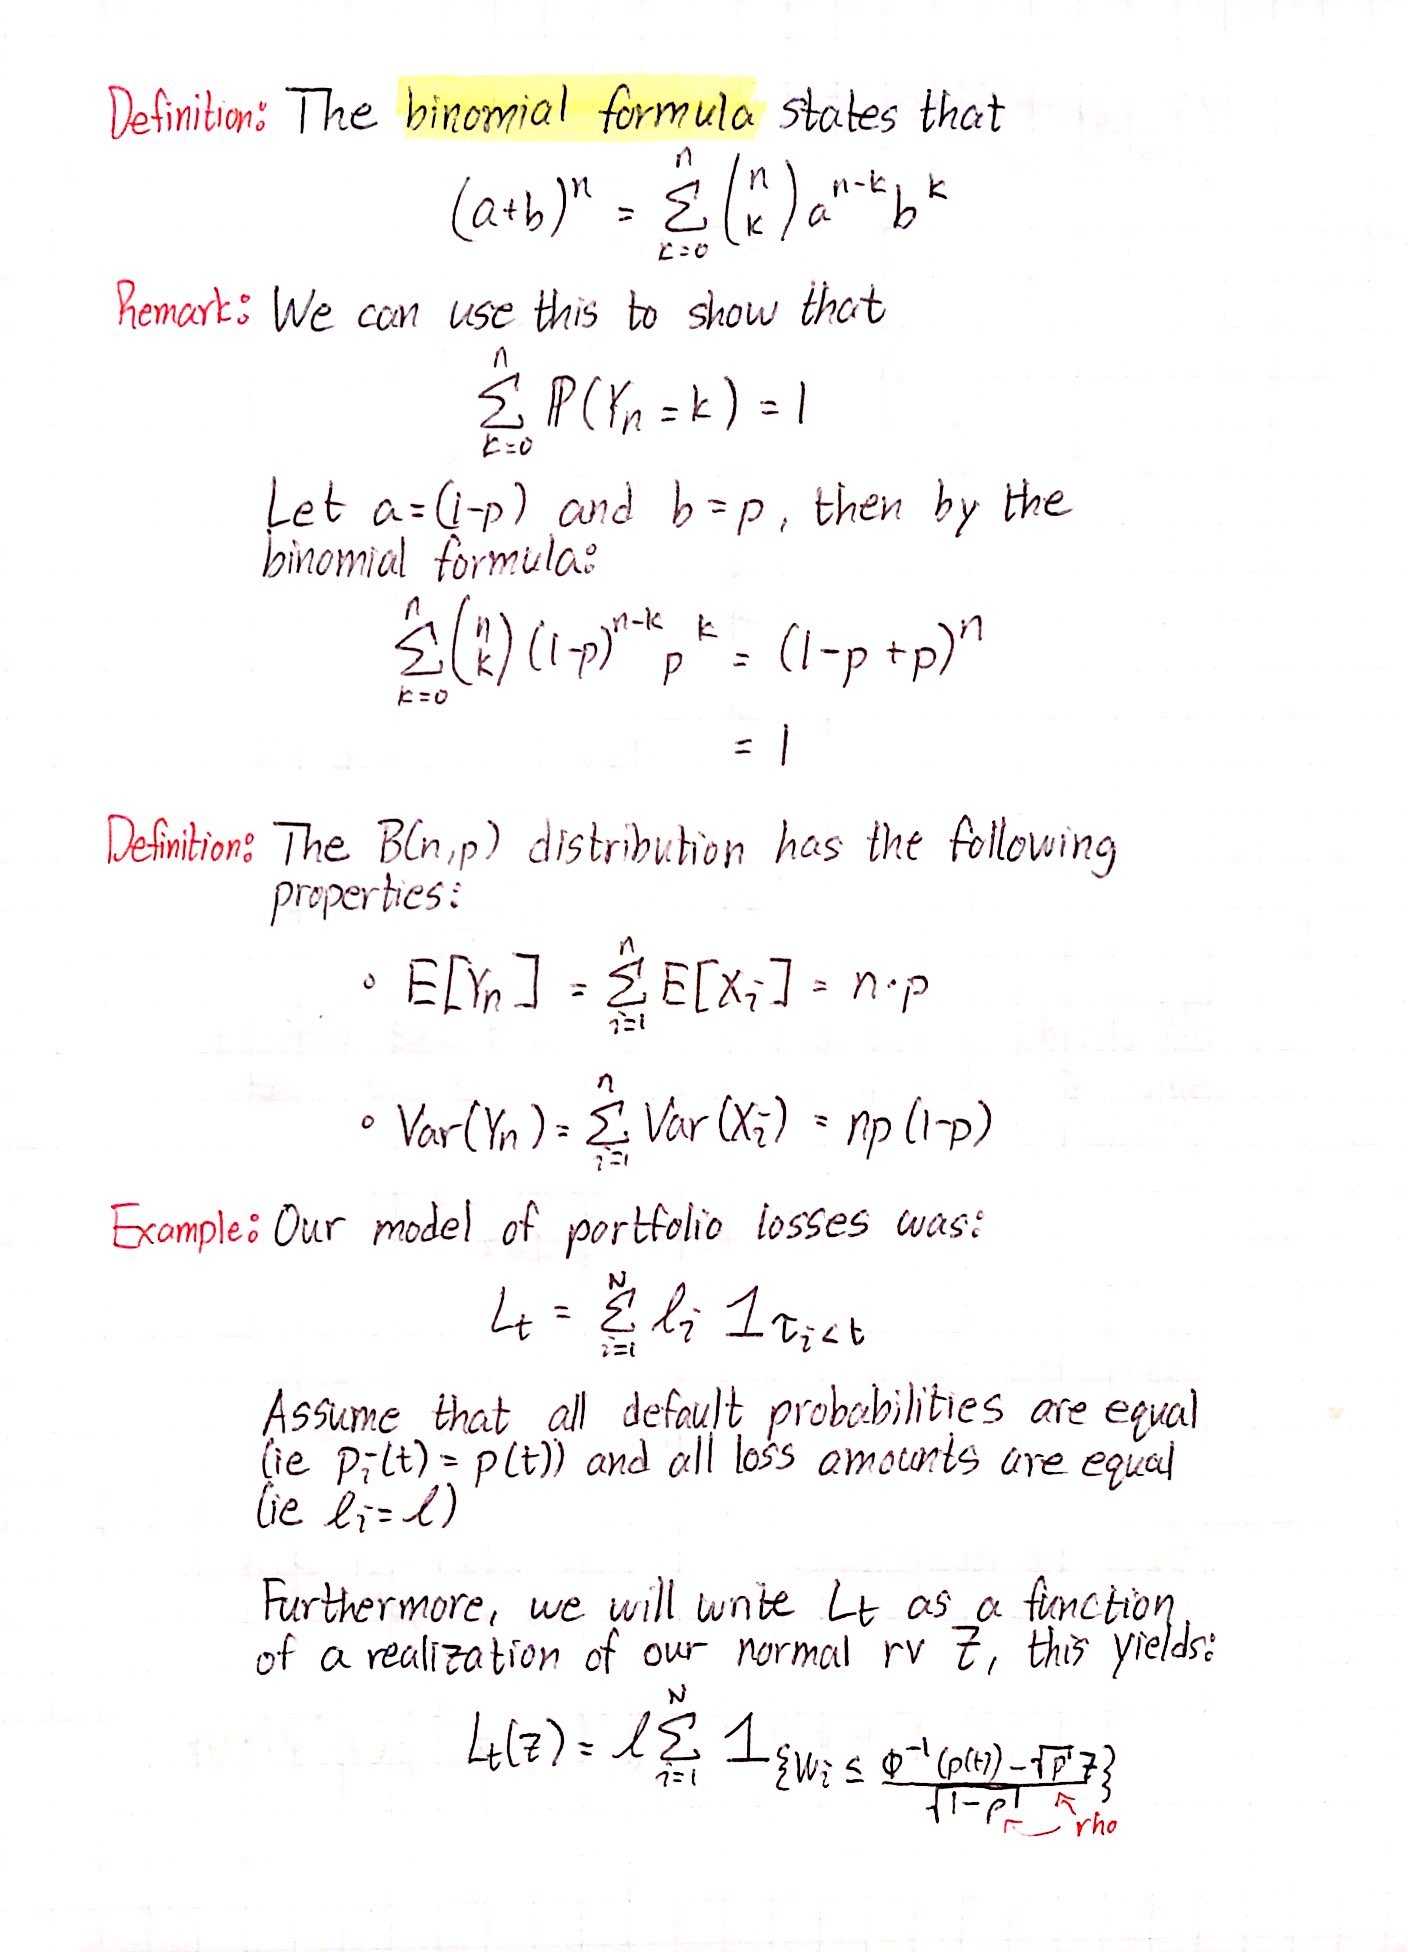 Definition: The binomial formula states that
(a+b)^n = Σ_{k=0}^{n} (n k) a^{n-k} b^k
Remark: We can use this to show that
Σ_{k=0}^{n} ℙ(Y_n = k) = 1
Let a=(1-p) and b=p, then by the
binomial formula:
Σ_{k=0}^{n} (n k) (1-p)^{n-k} p^k = (1-p+p)^n
= 1
Definition: The B(n,p) distribution has the following
properties:
∘ E[Y_n] = Σ_{i=1}^{n} E[X_i] = n·p
∘ Var(Y_n) = Σ_{i=1}^{n} Var(X_i) = np(1-p)
Example: Our model of portfolio losses was:
L_t = Σ_{i=1}^{N} ℓ_i 1_{τ_i<t}
Assume that all default probabilities are equal
(ie p_i(t) = p(t)) and all loss amounts are equal
(ie ℓ_i = ℓ)
Furthermore, we will write L_t as a function
of a realization of our normal rv Z, this yields:
L_t(Z) = ℓ Σ_{i=1}^{N} 1_{{W_i ≤ (Φ^{-1}(p(t)) - √ρ Z) / √(1-ρ)}}
rho